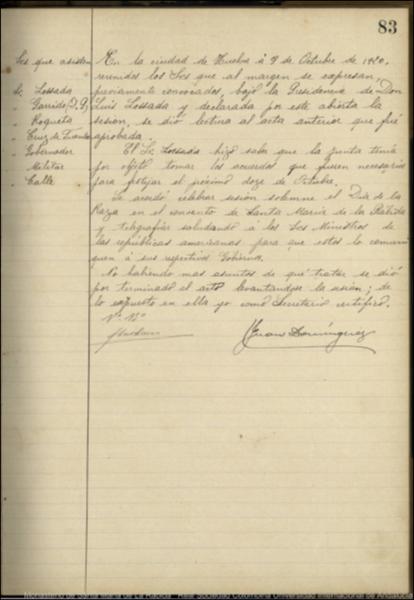 83
Sres que asisten
Sr. Lossada
" Garrido (D. J)
" Roqueta
" Cruz de
" Gobernador
Militar
" Calle
En la ciudad de Huelva á 9 de Octubre de 1920,
reunidos los Sres que al margen se expresan,
previamente convocados, bajo la Presidencia de Don
Luis Lossada y declarada por este abierta la
sesion, se dió lectura al acta anterior que fué
aprobada.
El Sr. Lossada hizo saber que la junta tenía
por objeto tomar los acuerdos que fuesen necesarios
para festejar el próximo doze de Octubre.
Se acordó celebrar sesion solemne el Dia de la
Raza en el convento de Santa Maria de la Rábida
y telegrafiar saludando á los Sres Ministros de
las republicas americanas para que estos lo comuni
quen á sus respectivos Gobiernos.
No habiendo mas asuntos de que tratar se dió
por terminado el acto levantandose la sesión; de
lo expuesto en ella yo como Secretario certifico.
Vº Bº
Juan Dominguez
Monasterio de Santa María de La Rábida - Real Sociedad Colombina Universidad Internacional de Andalucía